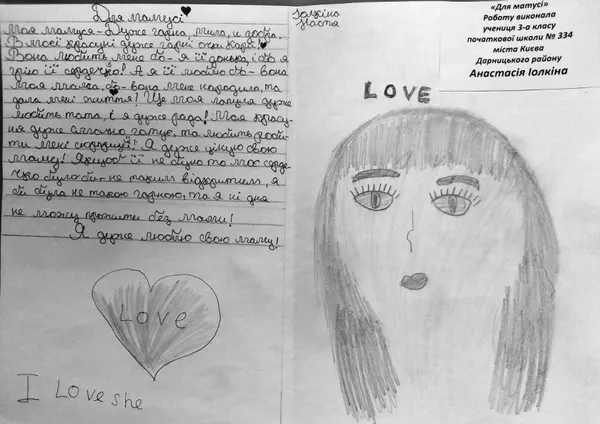 Для мамусі
Моя мамуся - Дуже гарна, мила, и добра.
В моєї красуні дуже гарні очи карі!
Вона любить мене бо - я її донька, і бо я
грію її сердечко! А я її люблю бо - вона
моя мама, бо - вона мене народила, та
дала мені життя! Ще моя матуся дуже
любить тата, і я дуже рада! Моя красу-
ня дуже смачно готує, та любить роби-
ти мені сюрпризи! Я дуже ціную свою
маму! Якщоб її не було то моє серде-
чко було би не таким відкритим, я
би була не такою гарною, та я ні дня
не можу прожити без мами!
Я дуже люблю свою маму!
LOVE
I Love she
Іолкіна
Настя
«Для матусі»
Роботу виконала
учениця 3-а класу
початкової школи № 334
міста Києва
Дарницького району
Анастасія Іолкіна
LOVE